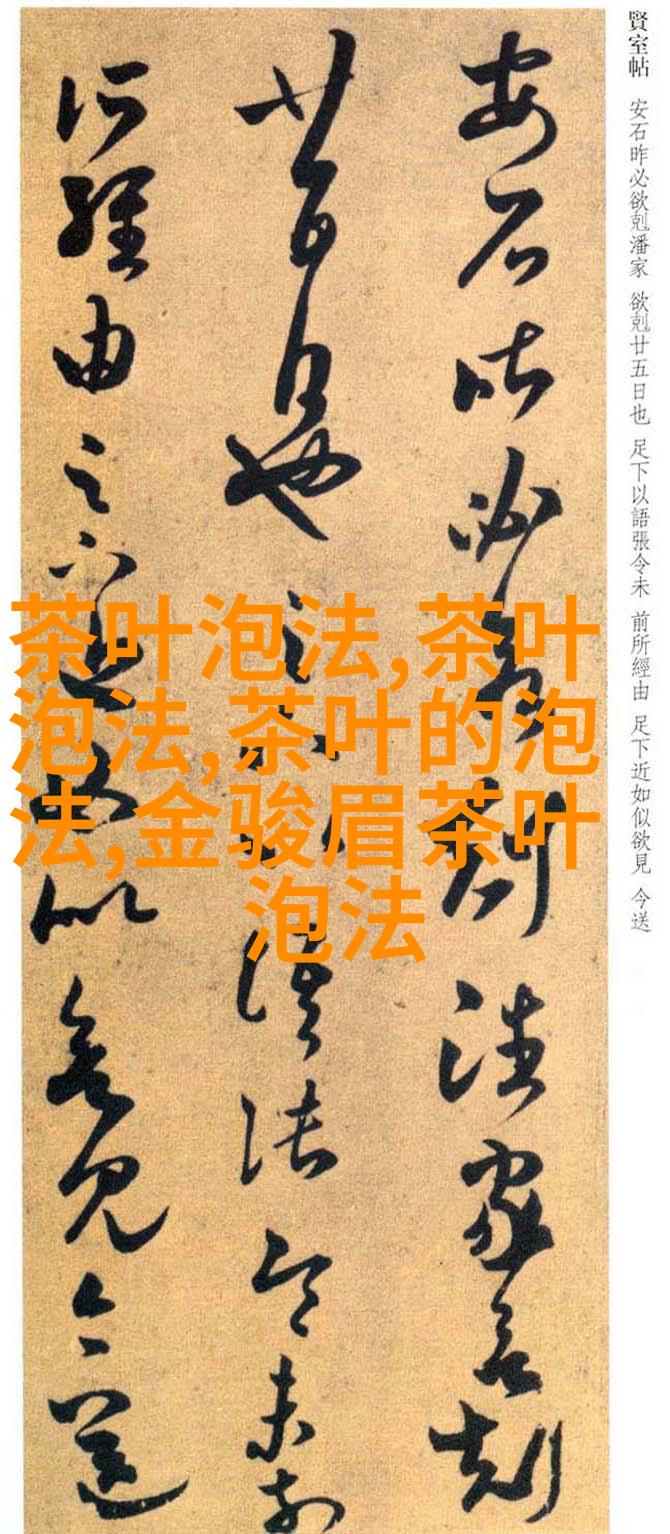 賢室帖 安石昨必欲剋潘家 欲剋廿五日也 足下以語張令未 前所經由 足下近如似欲見 今送
安石昨必欲剋潘家欲剋
廿五日也足下以語張令未前
所經由足下近如似欲見今送
茶叶泡法,茶叶
泡法,茶叶的泡
法,金骏眉茶叶
泡法